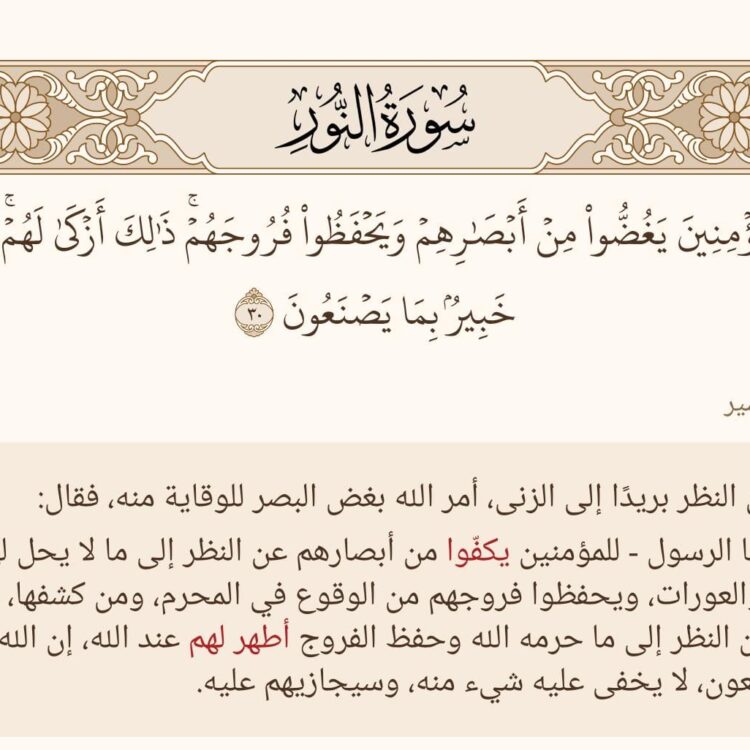 سُورَةُ النُّورِ
ؤۡمِنِينَ يَغُضُّواْ مِنۡ أَبۡصَٰرِهِمۡ وَيَحۡفَظُواْ فُرُوجَهُمۡۚ ذَٰلِكَ أَزۡكَىٰ لَهُمۡۚ
خَبِيرُۢ بِمَا يَصۡنَعُونَ ٣٠
النظر بريدًا إلى الزنى، أمر الله بغض البصر للوقاية منه، فقال:
الرسول - للمؤمنين يكفّوا من أبصارهم عن النظر إلى ما لا يحل
والعورات، ويحفظوا فروجهم من الوقوع في المحرم، ومن كشفها،
النظر إلى ما حرمه الله وحفظ الفروج أطهر لهم عند الله، إن الله
لا يخفى عليه شيء منه، وسيجازيهم عليه.